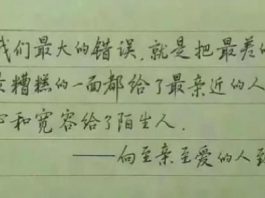 我们最大的错误,就是把最差的
糟糕的一面都给了最亲近的人
心和宽容给了陌生人.
——向至亲至爱的人致